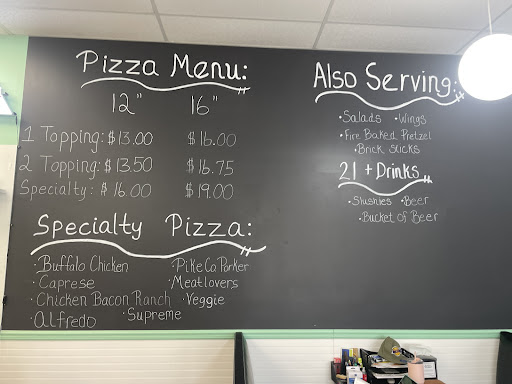 Pizza Menu:
12" 16"
1 Topping: $13.00 $16.00
2 Topping: $13.50 $16.75
Specialty: $16.00 $19.00
Specialty Pizza:
·Buffalo Chicken ·Pike Co Porker
·Caprese ·Meatlovers
·Chicken Bacon Ranch ·Veggie
·Alfredo ·Supreme
Also Serving:
·Salads ·Wings
·Fire Baked Pretzel
·Brick Sticks
21 + Drinks
·Slushies ·Beer
·Bucket of Beer